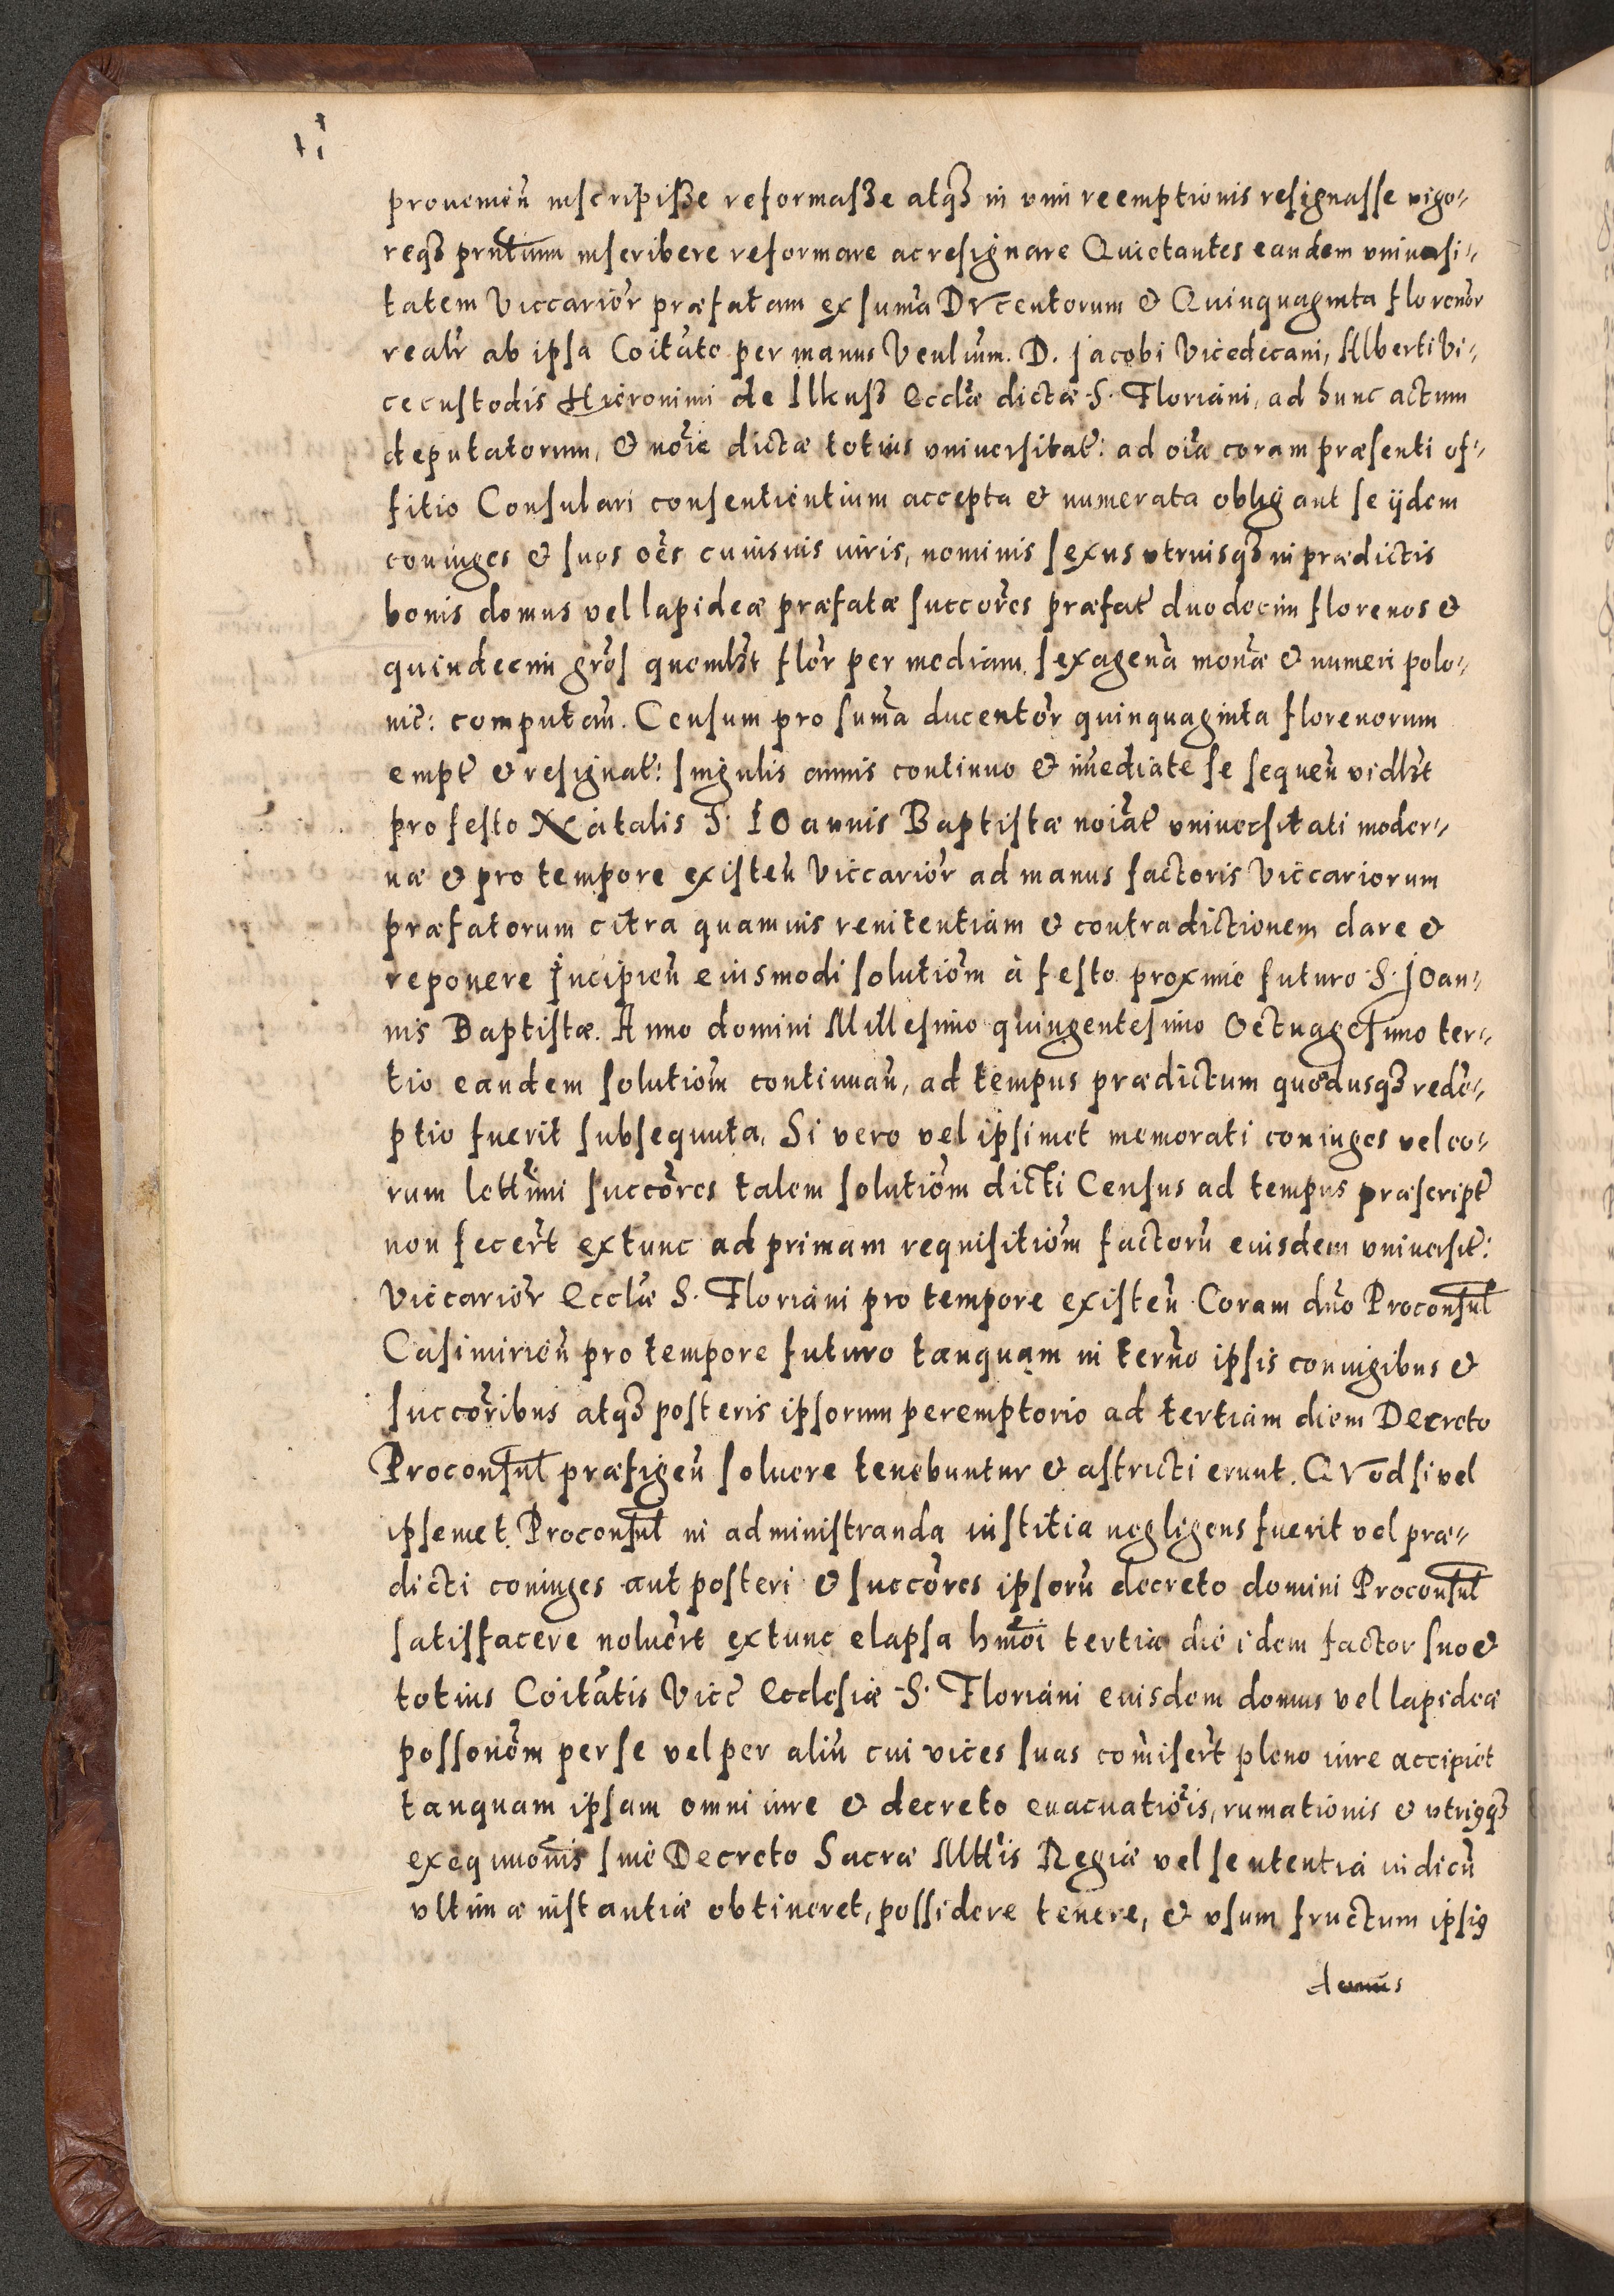 proueniеñ inscripisse reformasse atqȝ in vim reemptionis resignasse vigo-
reqȝ pr̃ntium inscribere reformare ac resignare Quietantes eandem vniuersi-
tatem Viccarior̃ præfatam ex sum̃a DVcentorum & Quinquaginta florenor̃
realr̃ ab ipsa Cõitate per manus Venl̃ium. D. Jacobi Vicedecani, Alberti Vi-
cecustodis Hieronimi de Ilkusz Eccl̃æ dictæ S. Floriani, ad hunc actum
deputatorum, & nõie dictæ totius vniuersitat̃: ad oĩa coram præsenti of-
fitio Consulari consentientium accepta & numerata obligant se ijdem
coniuges & suos oẽs cuiusuis iuris, nominis sexus vtriusqȝ in prædictis
bonis domus vel lapideæ præfatæ succõres præfat̃ duodecim florenos &
quindecim grõs quemlȝt flor̃ per mediam sexagenã monæ̃ & numeri polo-
nic̃: computañ. Censum pro sum̃a ducentor̃ quinquaginta florenorum
empt̃ & resignat̃: singulis annis continuo & im̃ediate se sequeñ vidlȝt
pro festo Natalis S. IOannis Baptistæ noĩat̃ vniuersitati moder-
næ & pro tempore existeñ Viccarior̃ ad manus factoris Viccariorum
præfatorum citra quamuis renitentiam & contradictionem dare &
reponere Incipieñ eiusmodi solutiõm à festo proxime futuro S. JOan-
nis Baptistæ. Anno domini Millesimo quingentesimo Octuagesimo ter-
tio eandem solutiõm continuañ, ad tempus prædictum quoadusqȝ redẽ-
ptio fuerit subsequuta, Si vero vel ipsimet memorati coniuges vel eo-
rum leĩttimi succõres talem solutiõm dicti Census ad tempus præscript̃
non fecer̃t extunc ad primam requisitiõm factorũ eiusdem vniuersit̃:
Viccarior̃ Eccl̃æ S. Floriani pro tempore existeñ Coram dño Proconsul̃
Casimirieñ pro tempore futuro tanquam in termõ ipsis coniugibus &
succõribus atqȝ posteris ipsorum peremptorio ad tertiam diem Decreto
Proconsul̃ præfigeñ soluere tenebuntur & astricti erunt. QVod si vel
ipsemet Proconsul̃ in administranda iustitia negligens fuerit vel præ-
dicti coniuges aut posteri & succõres ipsorũ decreto domini Proconsul̃
satisfacere noluer̃t extunc elapsa hm̃oi tertia die idem factor suo &
totius Cõitatis Vicc̃ Ecclesiæ S. Floriani eiusdem domus vel lapideæ
possonẽm per se vel per aliũ cui vices suas com̃iser̃t pleno iure accipiet
tanquam ipsam omni iure & decreto euacuatiõis, rumationis & vtriqqȝ
exequuõnis sine Decreto Sacræ Mttis Regiæ vel sententia iudicũ
vltimæ instantiæ obtineret, possidere tenere, & vsum fructum ipsiꝯ
domus